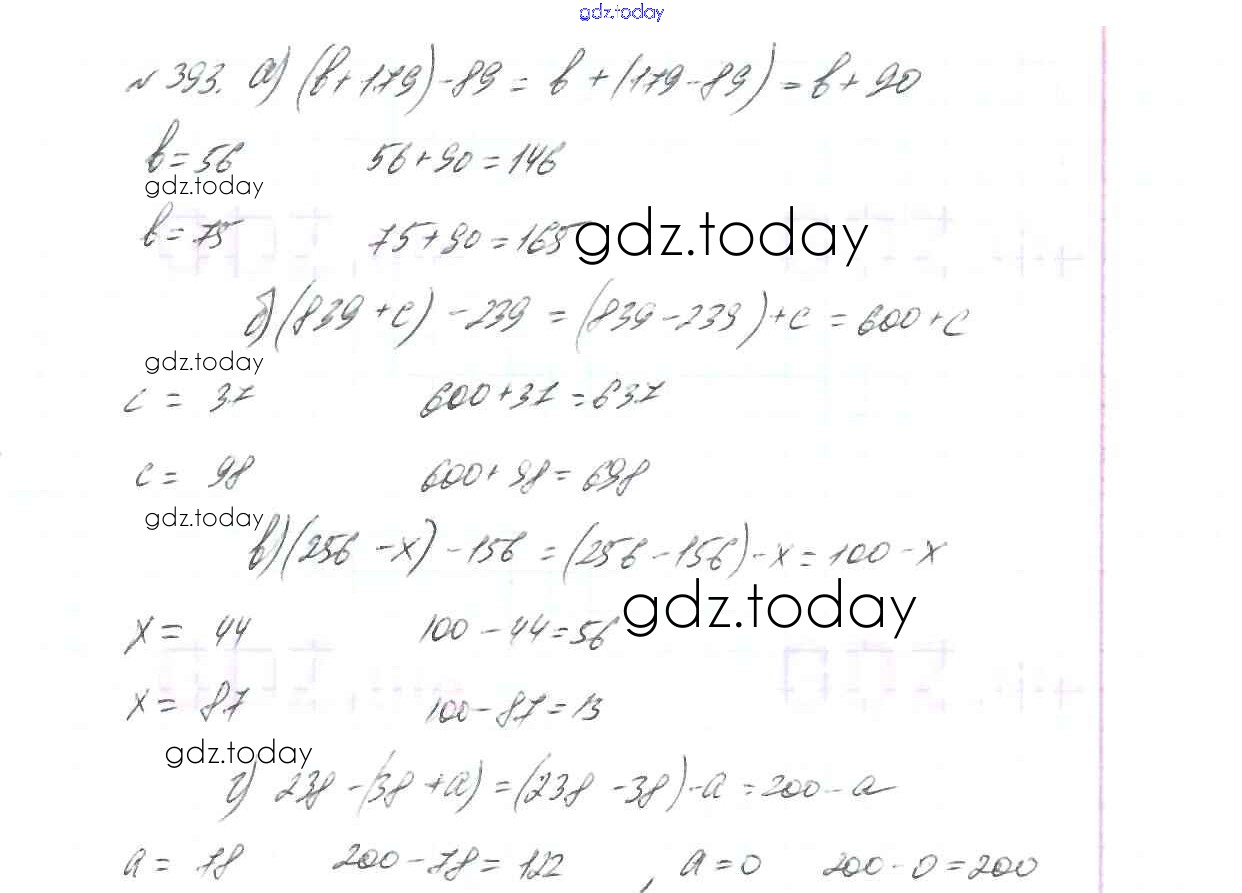 gdz.today
№ 393. а) (b+179)-89 = b+(179-89) = b+90
b=56 56+90=146
gdz.today
b=75 75+90=165
gdz.today
б) (839+c) - 239 = (839-239)+c = 600+c
gdz.today
c = 37 600+37=637
c = 98 600+98=698
gdz.today
в) (256-x) - 156 = (256-156)-x = 100-x
gdz.today
x = 44 100-44=56
x = 87 100-87=13
gdz.today
г) 238-(38+a) = (238-38)-a = 200-a
a = 78 200-78=122 , a=0 200-0=200